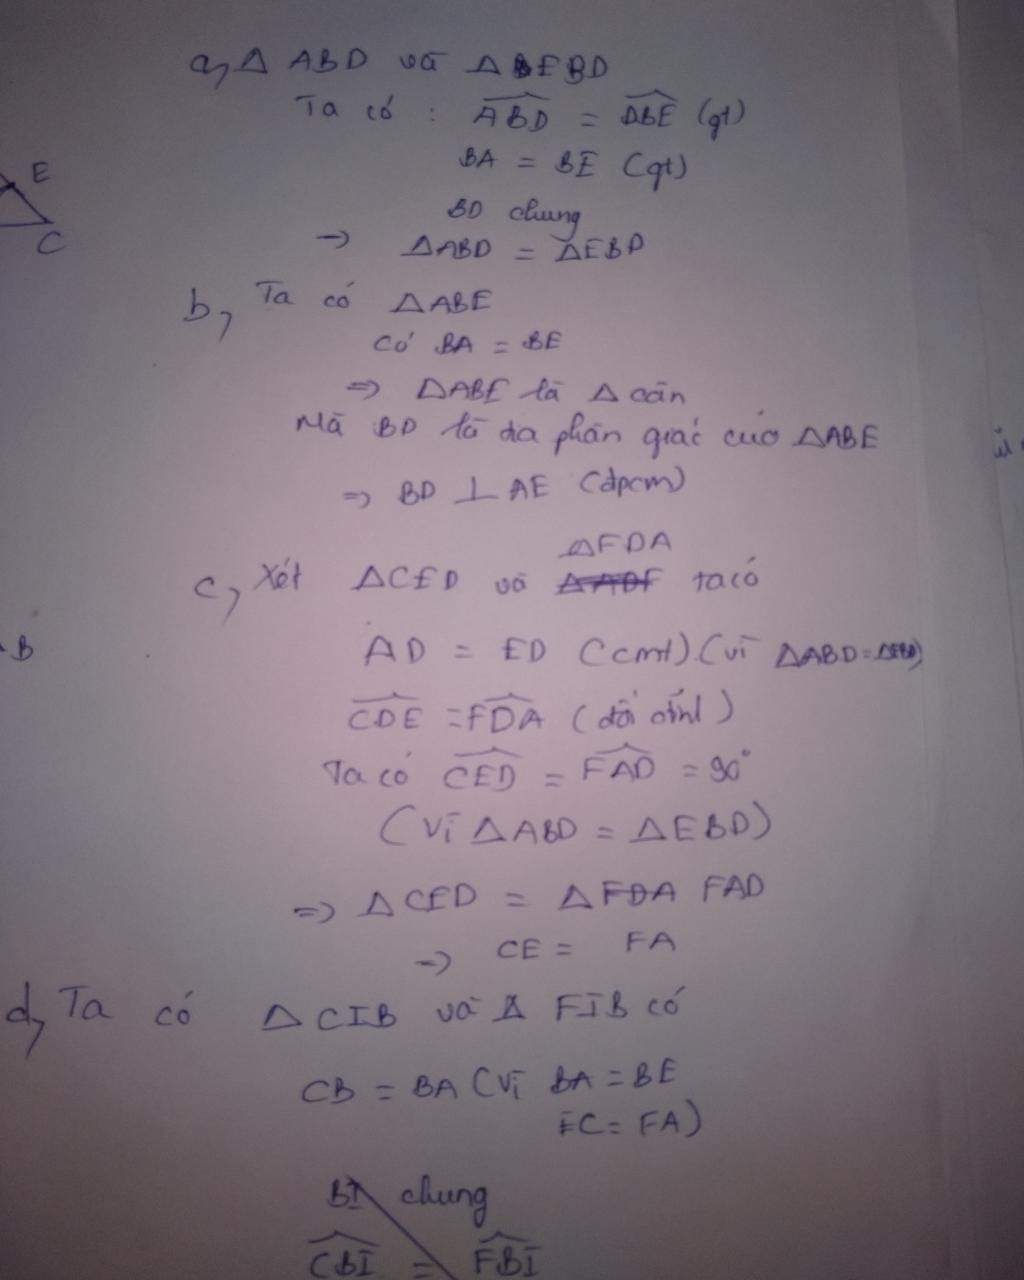 a, △ ABD và △ EBD
Ta có : ABD = DBE (gt)
BA = BE (gt)
E
BD chung
→ △ABD = △EBD
C
b, Ta có △ABE
Có BA = BE
=> △ABE là △ cân
Mà BD là tia phân giác của △ABE
=> BD ⊥ AE (đpcm)
△FDA
c, Xét △CED và △ADF ta có
B
AD = ED (cmt) (vì △ABD = △EBD)
CDE = FDA (đối đỉnh)
Ta có CED = FAD = 90°
(Vì △ABD = △EBD)
=> △CED = △ FDA FAD
=> CE = FA
d, Ta có △ CIB và △ FIB có
CB = BA (Vì BA = BE
EC = FA)
BI chung
CBI = FBI